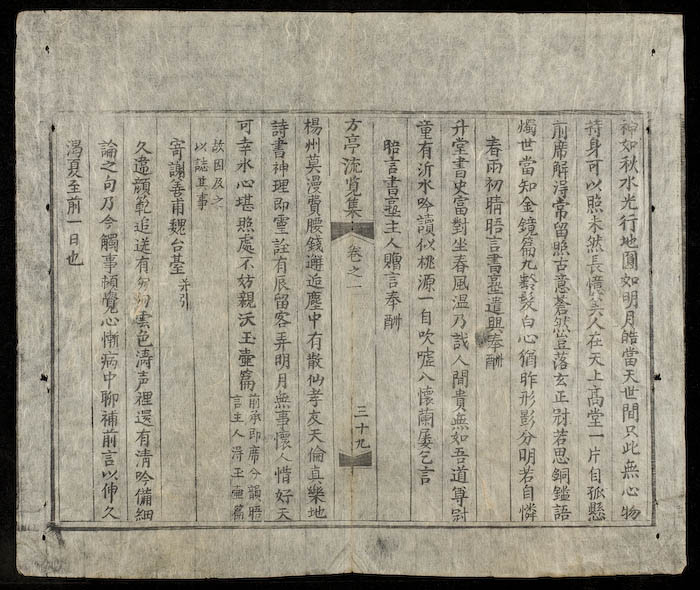 神如秋水光行地圓如明月皓當天世間只此無心物
持身可以照未然長憶美人在天上高堂一片自孤懸
前席解淂常留照古意蒼然豈落玄正尉若思銅鑑語
燭世當知金鏡篇九齡髮白心猶昨形影分明若自憐
春雨初晴晤言書臺遣興奉酬
升堂書史富對坐春風溫乃哉人間貴無如吾道尊尉
童有沂水吟讀似桃源一自吹噓八懷蘭屡乞言
晤言書臺主人贈言奉酬
方亭流覽集 卷之一 三十九
楊州莫漫費腰錢邂逅塵中有散仙孝友天倫真樂地
詩書神理即靈詮有辰留客弄明月無事懷人惜好天
可幸水心堪照處不妨親沃玉壺篇 前承即席今韻晤
言主人淂玉壺篇
故因及之
以誌其事
寄謝善甫魏台臺 并引
久違顔範追送有勿勿雲色濤声裡還有清吟備細
論之句乃今觸事頓覺心慚病中聊補前言以伸久
渴夏至前一日也